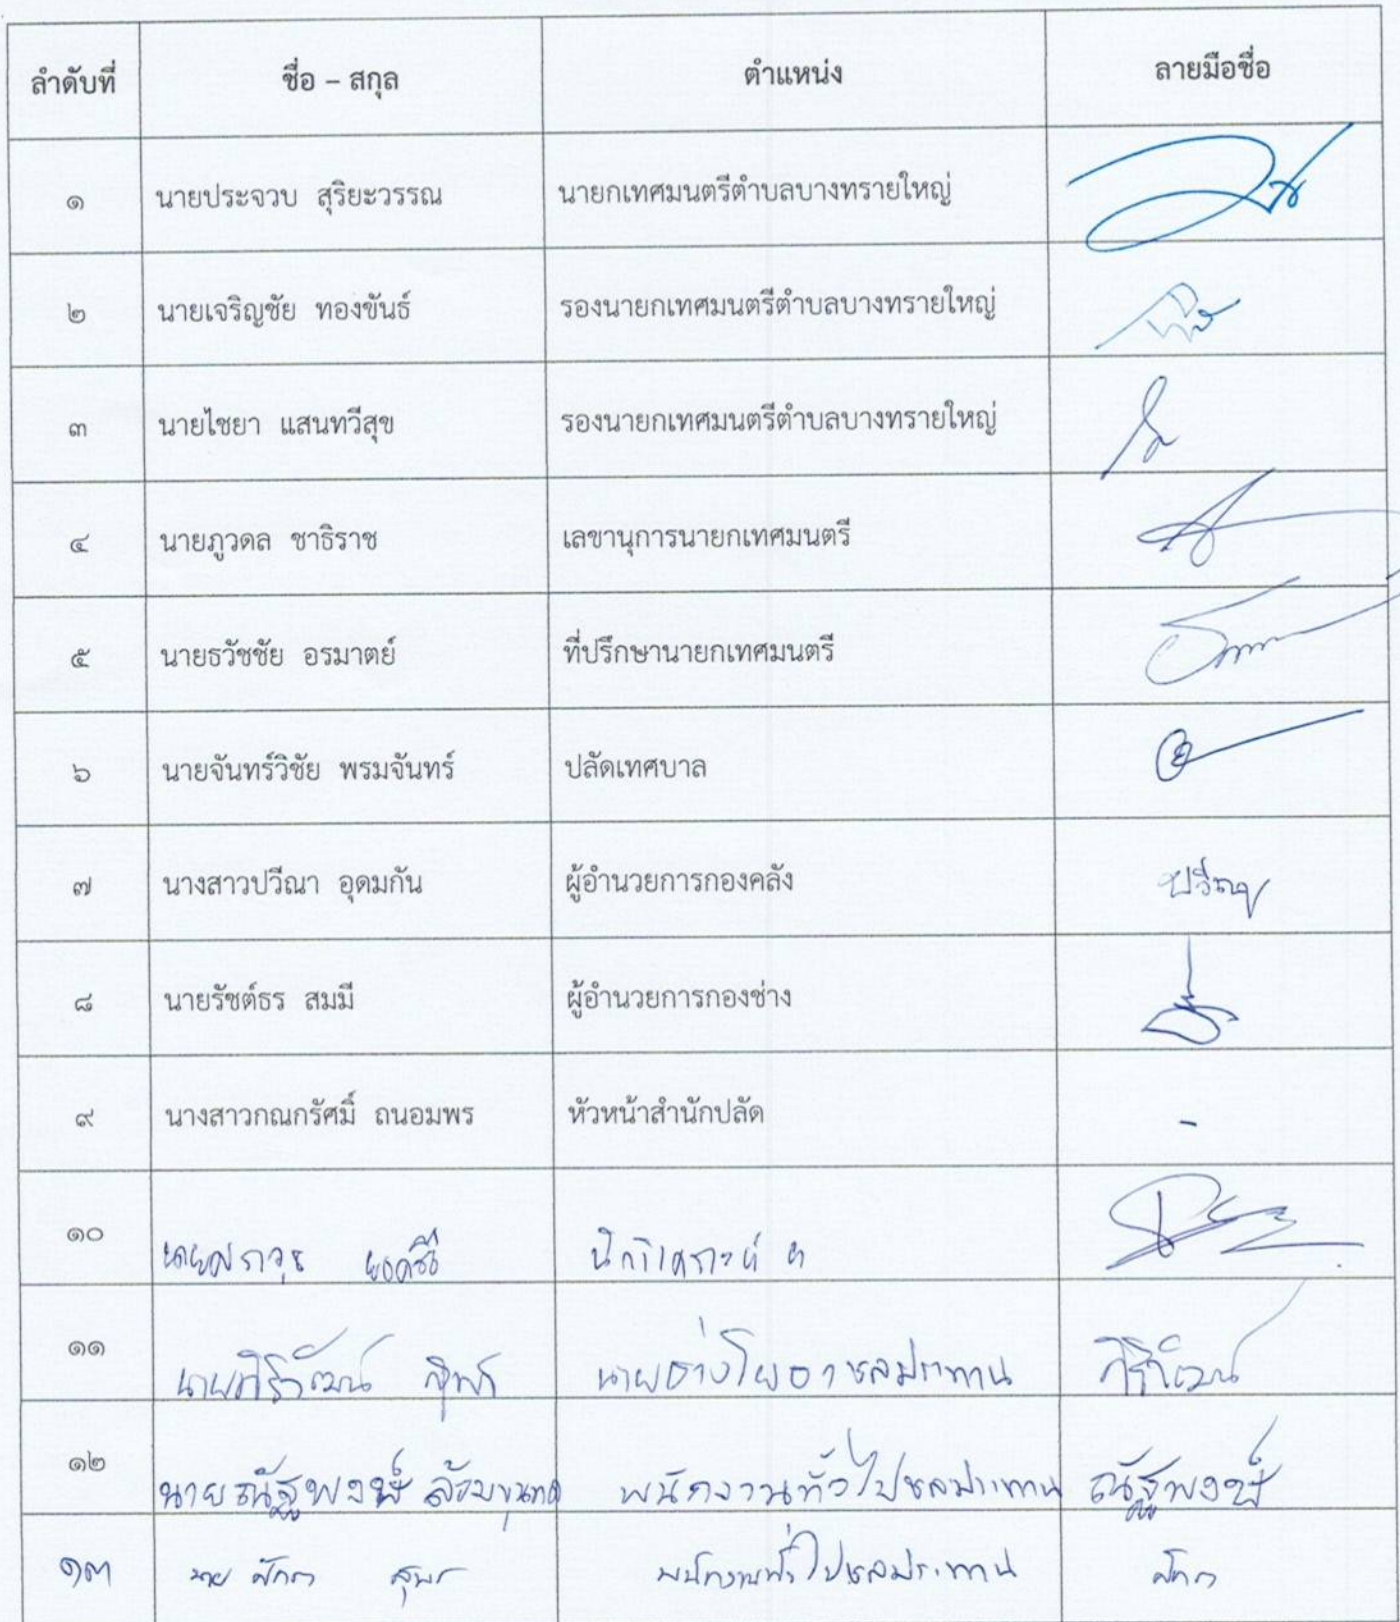 ลำดับที่ ชื่อ – สกุล ตำแหน่ง ลายมือชื่อ
๑ นายประจวบ สุริยะวรรณ นายกเทศมนตรีตำบลบางทรายใหญ่
๒ นายเจริญชัย ทองขันธ์ รองนายกเทศมนตรีตำบลบางทรายใหญ่
๓ นายไชยา แสนทวีสุข รองนายกเทศมนตรีตำบลบางทรายใหญ่
๔ นายภูวดล ชาธิราช เลขานุการนายกเทศมนตรี
๕ นายธวัชชัย อรมาตย์ ที่ปรึกษานายกเทศมนตรี
๖ นายจันทร์วิชัย พรมจันทร์ ปลัดเทศบาล
๗ นางสาวปวีณา อุดมกัน ผู้อำนวยการกองคลัง ปวีณา
๘ นายรัชต์ธร สมมี ผู้อำนวยการกองช่าง
๙ นางสาวกณกรัศมิ์ ถนอมพร หัวหน้าสำนักปลัด -
๑๐
๑๑ นายช่างโยธาชลประทาน
๑๒ นายณัฐพงษ์ พนักงานทั่วไปชลประทาน ณัฐพงษ์
๑๓ นาย พนักงานทั่วไปชลประทาน